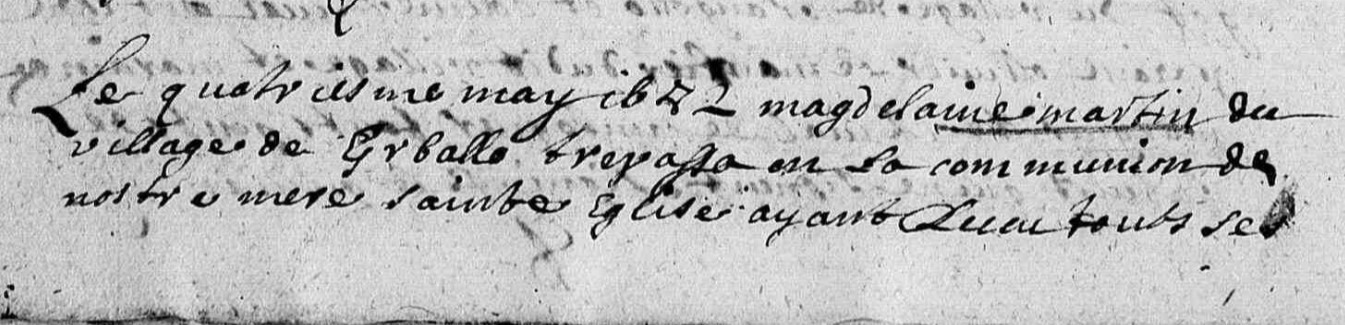 Le quatriesme may magdelaine martin du
village de trepassa en la communion de
nostre mere sainte Eglise ayant touts ses